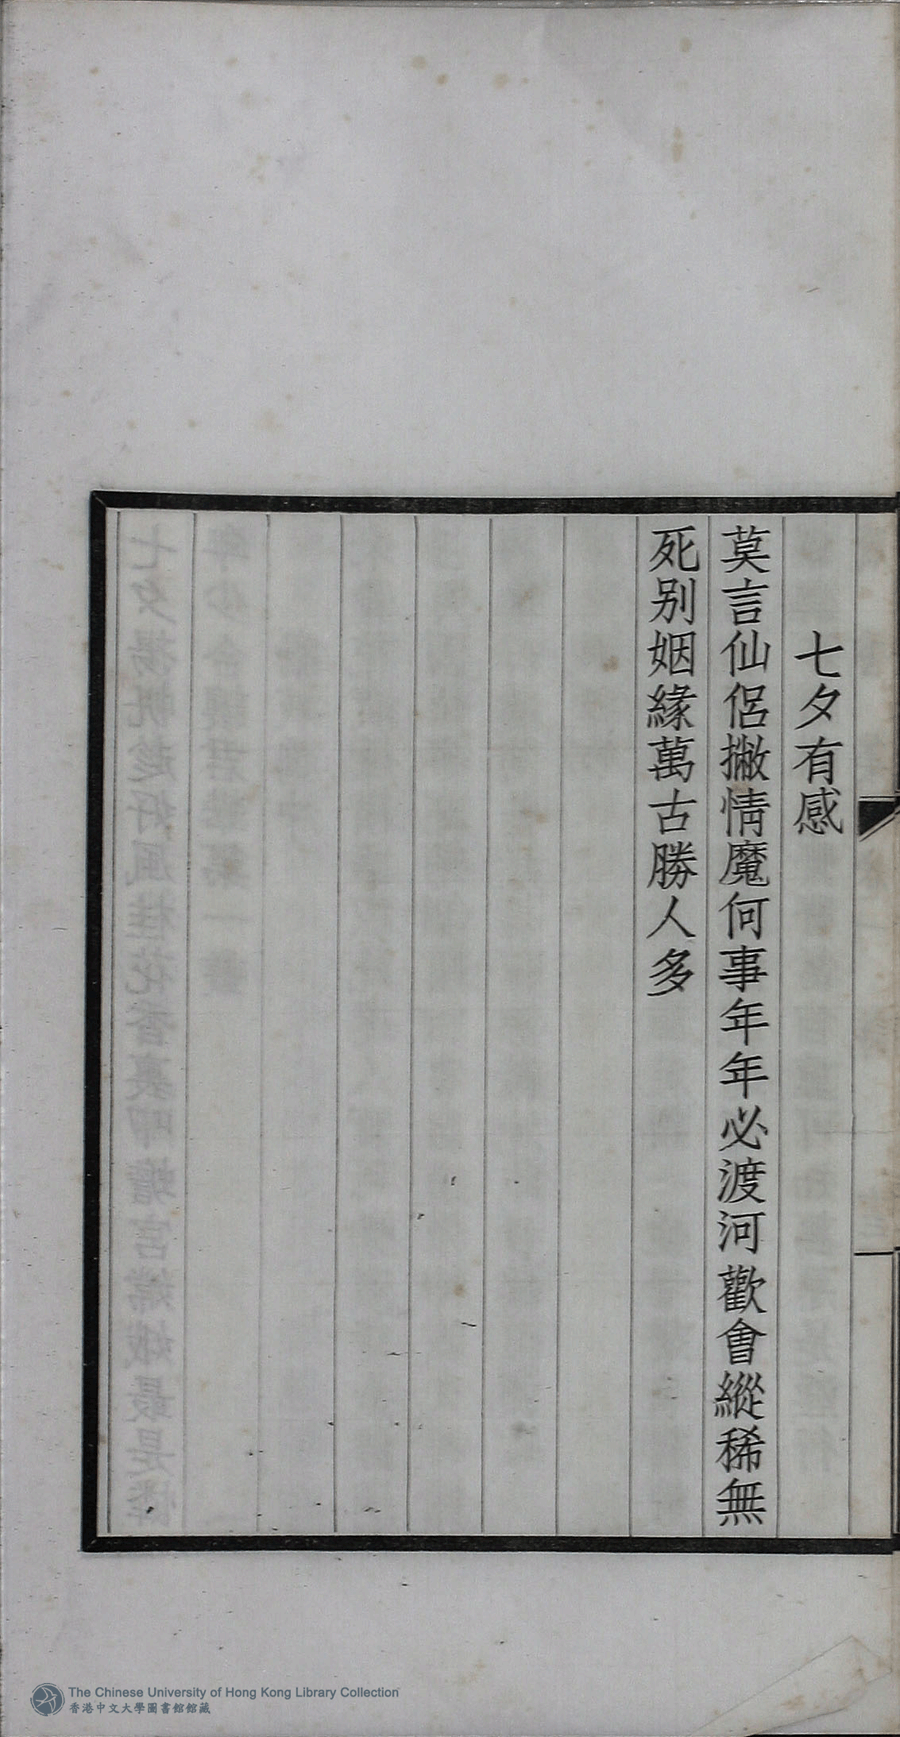 七夕有感
莫言仙侶撇情魔何事年年必渡河歡會縱稀無
死别姻緣萬古勝人多
The Chinese University of Hong Kong Library Collection
香港中文大學圖書館館藏